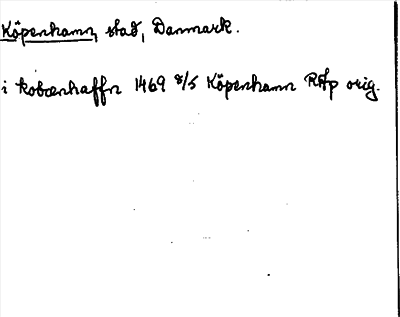 Köpenhamn, stad, Danmark.
i kobœnhaffn 1469 8/5 Köpenhamn RAp orig.